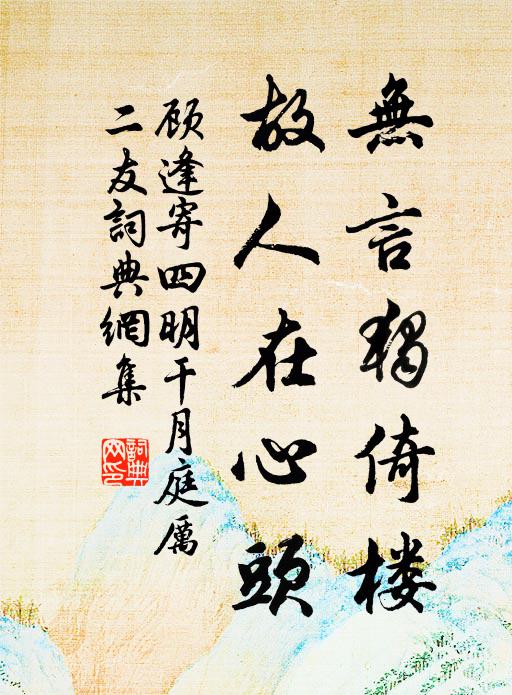 無言独倚楼
故人在心頭
顾逢寄四明干月庭厲
二友詞典網集
詞典
网印